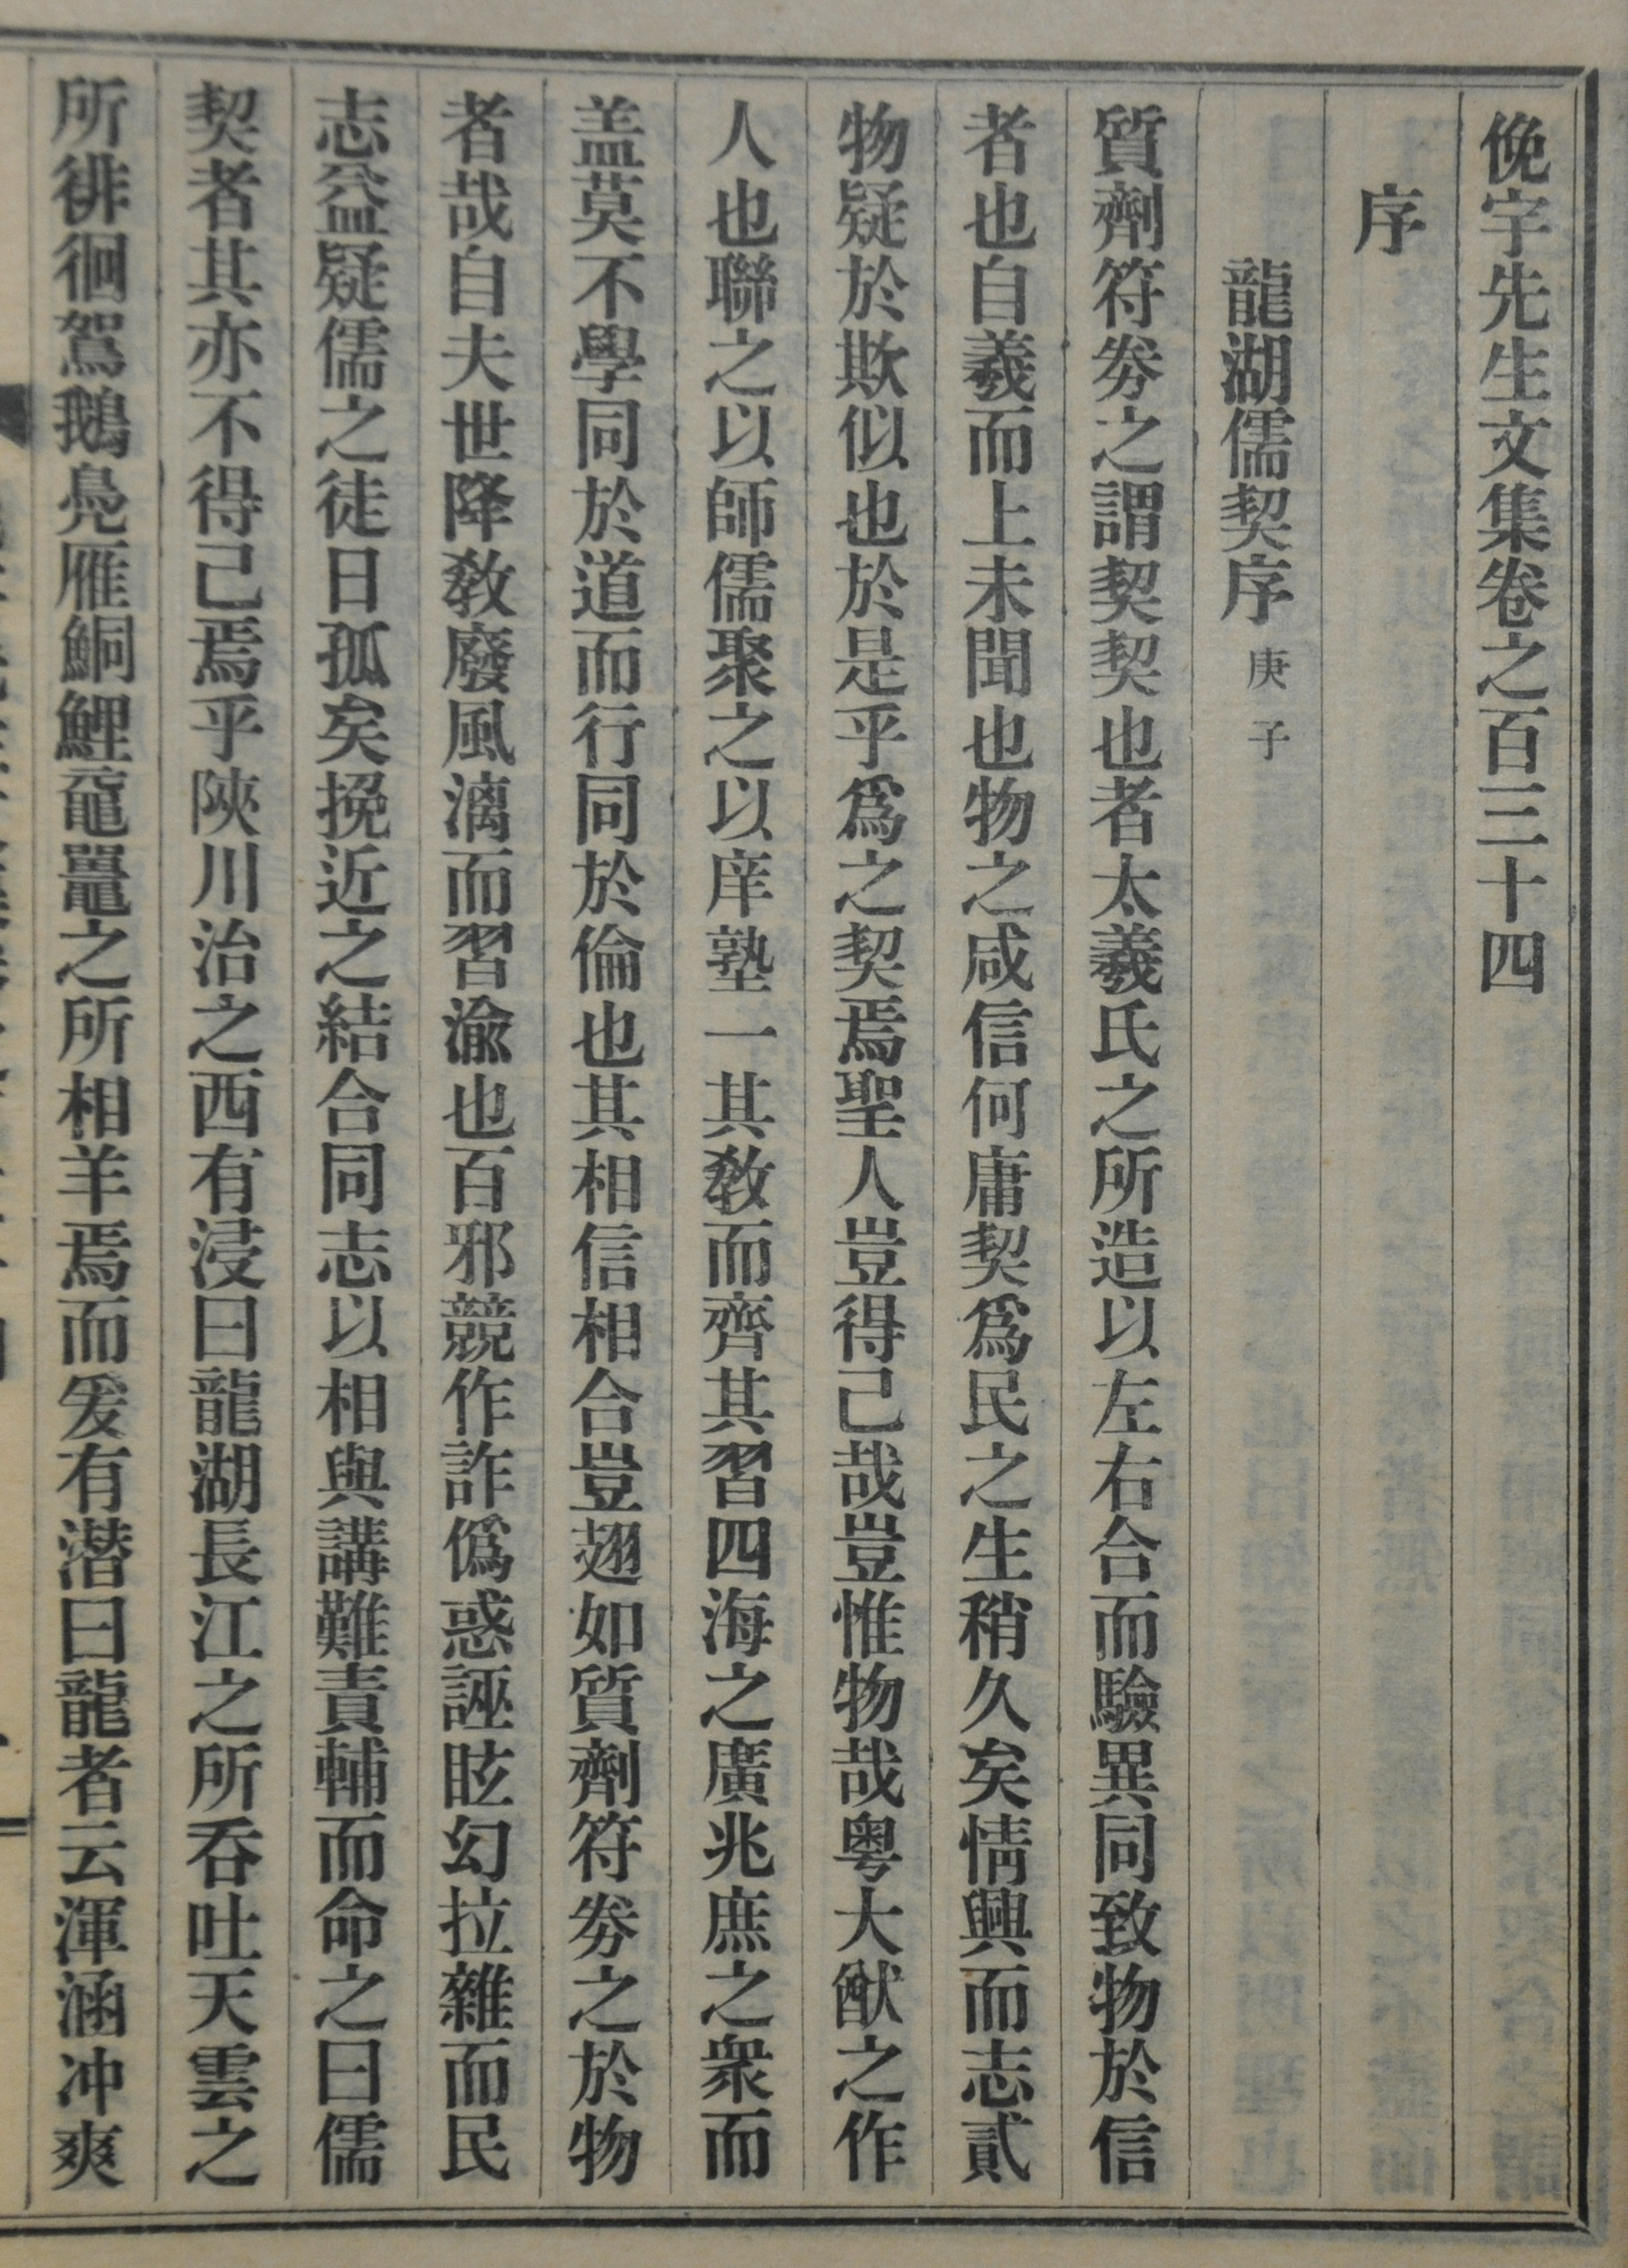 俛宇先生文集卷之百三十四
序
龍湖儒契序庚子
質劑符劵之謂契契也者太羲氏之所造以左右合而驗異同致物於信
者也自羲而上未聞也物之咸信何庸契爲民之生稍久矣情興而志貳
物疑於欺似也於是乎爲之契焉聖人豈得已哉豈惟物哉粤大猷之作
人也聯之以師儒聚之以庠塾一其敎而齊其習四海之廣兆庶之衆而
盖莫不學同於道而行同於倫也其相信相合豈翅如質劑符劵之於物
者哉自夫世降敎廢風漓而習渝也百邪競作詐僞惑誣眩幻拉雜而民
志益疑儒之徒日孤矣挽近之結合同志以相與講難責輔而命之曰儒
契者其亦不得已焉乎陜川治之西有浸曰龍湖長江之所呑吐天雲之
所徘徊鴐鵝鳧雁鮦鯉黿鼉之所相羊焉而爰有潛曰龍者云渾涵冲爽